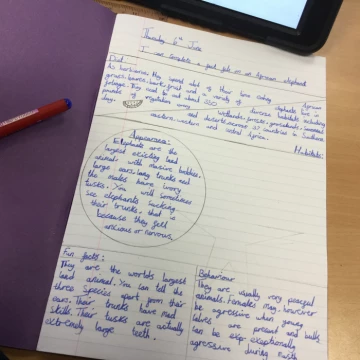 Thursday 6th June
I can complete a fact file on an African elephant
Diet
As herbivores, they spend a lot of their time eating
grass, leaves, bark, fruit and a variety of
foliage. They need to eat about 350
pounds of vegetation every
day.
African
elephants live in
diverse habitats including
wetlands, forests, grasslands, savannah
and deserts across 23 countries in Southern
eastern, western and central Africa.
Habitats:
Appearance:
Elephants are the
largest existing land
animal, with massive bodies,
large ears, long trunks and
the males have ivory
tusks. You will sometimes
see elephants sucking
their trunks, that is
because they feel
anxious or nervous.
Fun facts:
They are the world's largest
land animal. You can tell the
three species apart from their
ears. Their trunks have mad
skills. Their tusks are actually
extremely large teeth.
Behaviour
They are usually very peaceful
animals. Females may, however
be aggressive when young
calves are present and bulls
can be exceptionally
agressive during